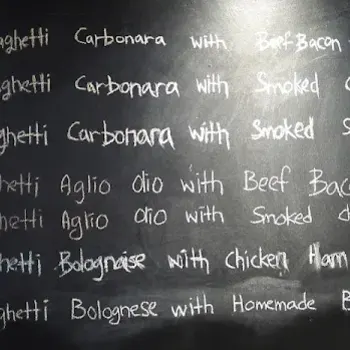 aghetti Carbonara with Beef Bacon
ghetti Carbonara with Smoked
ghetti Carbonara with Smoked S
hetti Aglio Olio with Beef Baco
hetti Aglio Olio with Smoked
hetti Bolognaise with Chicken Ham
ghetti Bolognese with Homemade B